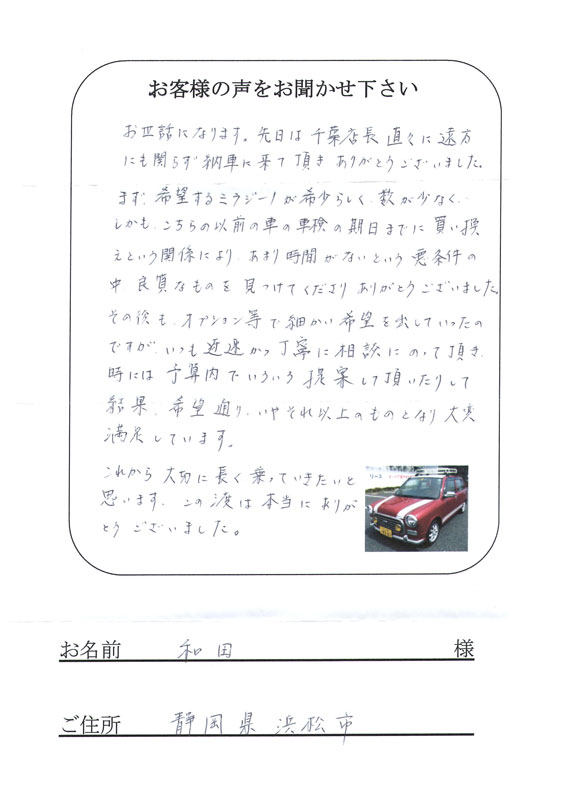 お客様の声をお聞かせ下さい
お世話になります。先日は千葉店長直々に遠方
にも関らず納車に来て頂きありがとうございました。
まず、希望するミラジーノが希少らしく、数が少なく、
しかも、こちらの以前の車の車検の期日までに買い換
えという関係により、あまり時間がないという悪条件の
中 良質なものを見つけてくださりありがとうございました。
その後も、オプション等で細かい希望を出していったの
ですが、いつも迅速かつ丁寧に相談にのって頂き、
時には予算内でいろいろ提案して頂いたりして
結果、希望通り、いやそれ以上のものとなり大変
満足しています。
これから大切に長く乗っていきたいと
思います。この渡は本当にありが
とうございました。
リース
お名前 和田 様
ご住所 静岡県浜松市